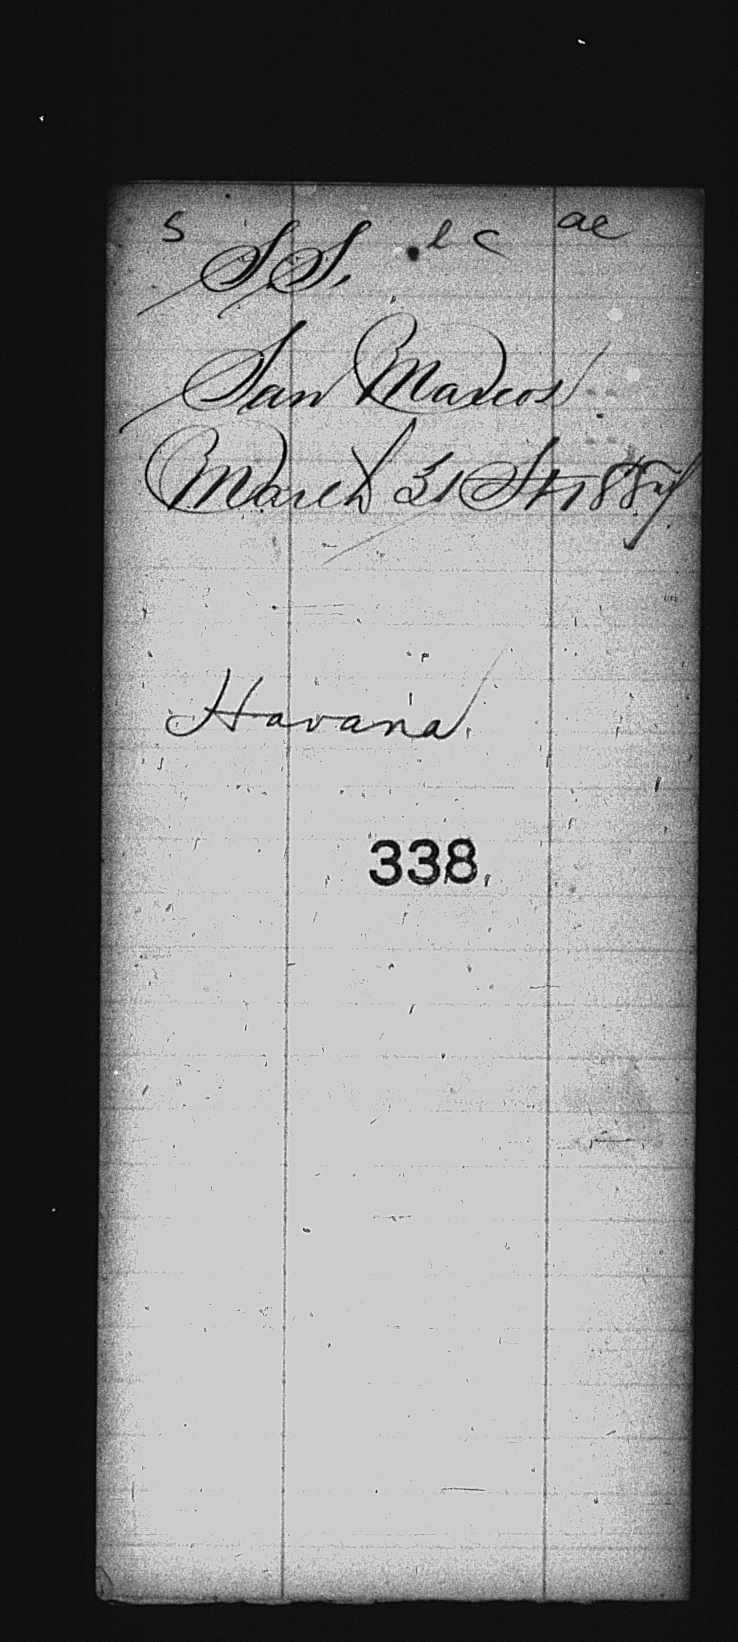 S l c ae
S.S.
San Marcos
March 31st 1887
Havana.
338.